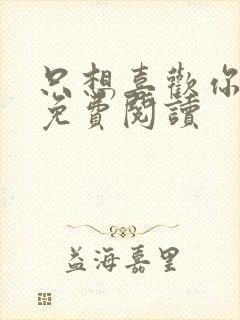 只想喜歡你
免費閱讀
益海嘉里